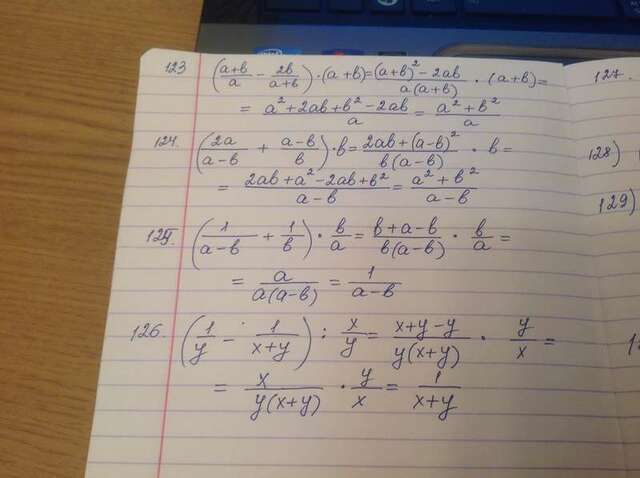 123 ((a+b)/a - 2b/(a+b)) · (a+b) = ((a+b)² - 2ab)/(a(a+b)) · (a+b) =
= (a² + 2ab + b² - 2ab)/a = (a² + b²)/a
124. (2a/(a-b) + (a-b)/b) · b = (2ab + (a-b)²)/(b(a-b)) · b =
= (2ab + a² - 2ab + b²)/(a-b) = (a² + b²)/(a-b)
125. (1/(a-b) + 1/b) · b/a = (b+a-b)/(b(a-b)) · b/a =
= a/(a(a-b)) = 1/(a-b)
126. (1/y - 1/(x+y)) : x/y = (x+y-y)/(y(x+y)) · y/x =
= x/(y(x+y)) · y/x = 1/(x+y)
127.
128)
129)